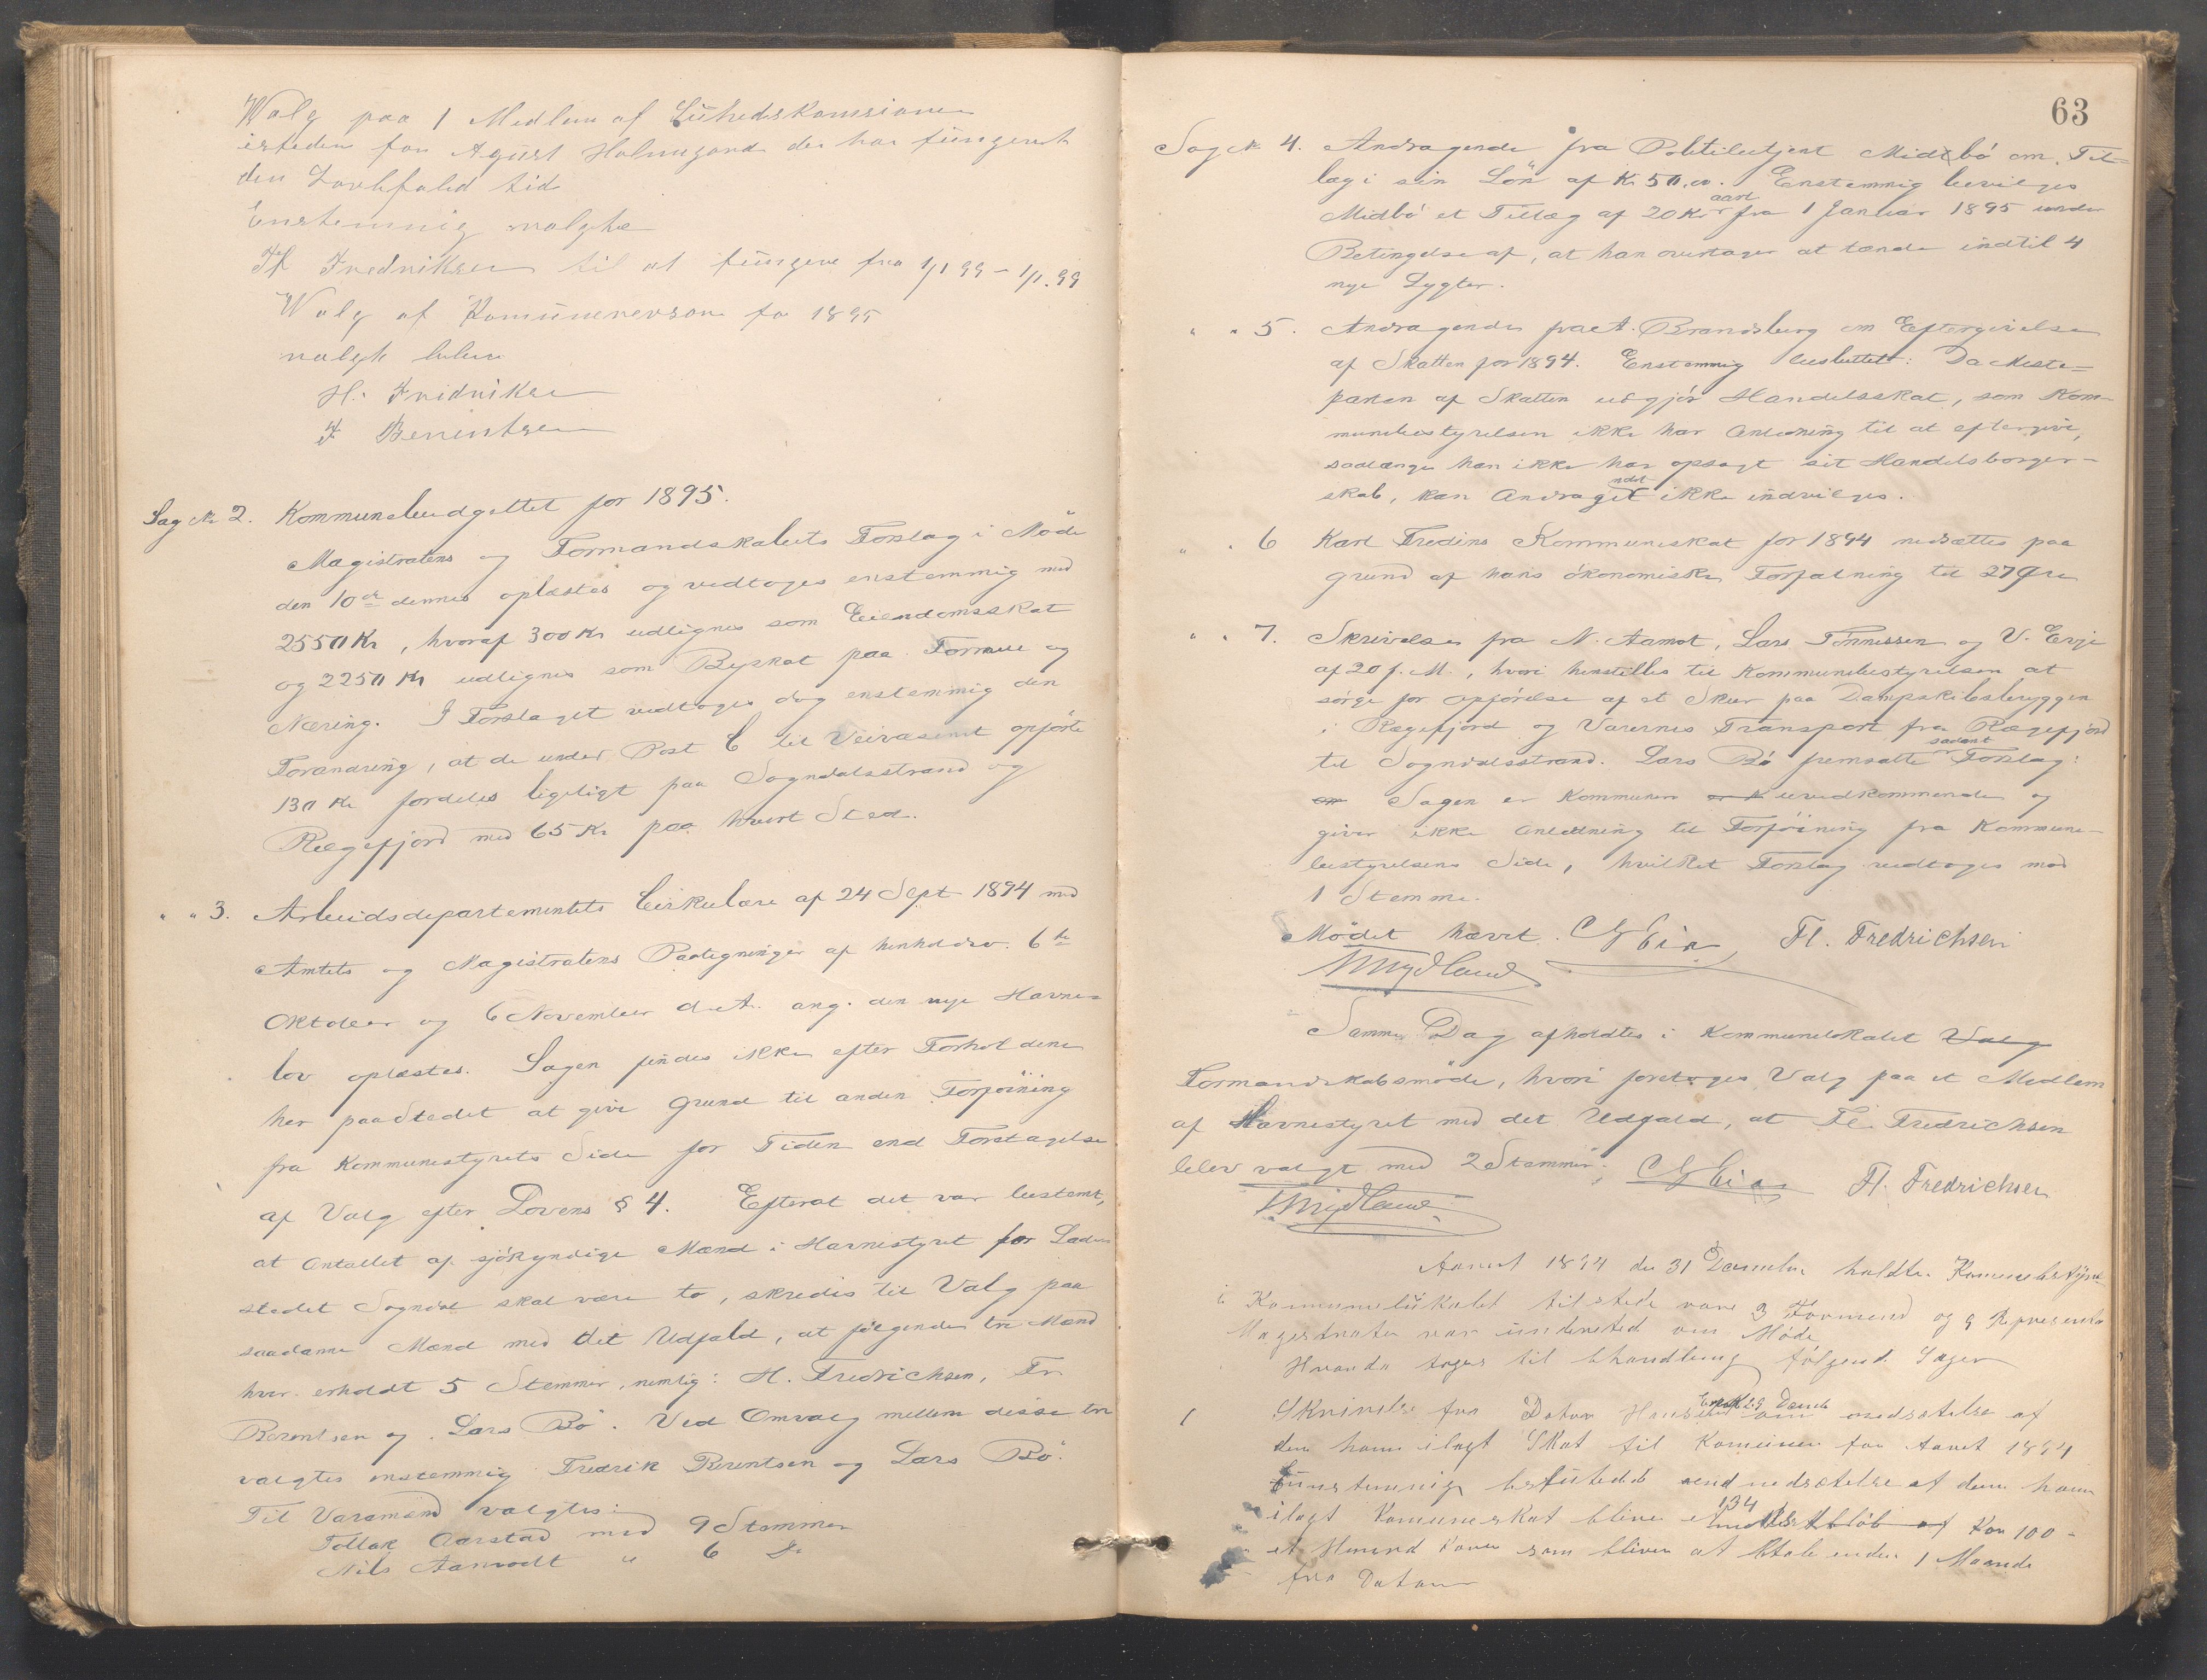 Walg paa 1 Medlem af Sŭhedskomsionen
isteden for Agŭst Holmegard der har fŭngeret
den Lovbfaled tid
Enstemmig valgte
Fl Fredriksen til at fŭngere fra 1/1 95 – 1/1. 99
Walg af Komŭnerevsorer for 1895
valgt blev
H. Fridriksen
F Berentsen
Sag № 2. Kommunebudgettet for 1895.
Magistratens og Formandskabets Forslag i Møde
den 10de dennes oplæstes og vedtoges enstemmig med
2550 Kr, hvoraf 300 Kr udlignes som Eiendomsskat
og 2250 Kr udlignes som Byskat paa Formue og
Næring. I Forslaget vedtoges dog enstemmig den
Forandring, at de under Post C til Veivæsenet opførte
130 Kr fordeles ligeligt paa Sogndalsstrand og
Rægefjord med 65 Kr paa hvert Sted.
" " 3. Arbeidsdepartementets Cirkulære af 24 Sept 1894 med
Amtets og Magistratens Paategninger af henholdsv. 6te
Oktober og 6 November d. A. ang. den nye Havne-
lov oplæstes. Sagen findes ikke efter Forholdene
her paa Stedet at give Grund til anden Forføining
fra Kommunestyrets Side for Tiden end Foretagelse
af Valg efter Lovens § 4. Efterat det var bestemt,
at Antallet af sjökyndige Mænd i Havnestyret for Lade-
stedet Sogndal skal være to, skredes til Valg paa
saadanne Mænd med det Udfald, at følgende tre Mænd
hver erholdt 5 Stemmer, nemlig: H. Fredrichsen, Fr.
Berentsen og Lars Bö. Ved Omvalg mellem disse tre
valgtes enstemmig Fredrik Berentsen og Lars Bö.
Til Varamænd valgtes:
Tollak Aarstad med 9 Stemmer
Nils Aamodt " 6 Do
63
Sag № 4. Andragende fra Politibetjent Midbö om Til-
læg i sin Lön af Kr 50,00. Enstemmig bevilges
Midbö et Tillæg af 20 Kr aarl fra 1 Januar 1895 under
Betingelse af, at han overtager at tænde indtil 4
nye Lygter.
" " 5. Andragende fra A. Brandsberg om Eftergivelse
af Skatten for 1894. Enstemmig besluttet: Da Meste-
parten af Skatten udgjör Handelsskat, som Kom-
munebestyrelsen ikke har Anledning til at eftergive,
saalænge han ikke har opsagt sit Handelsborger-
skab, kan Andragendet ikke indvilges.
" " 6 Karl Fredins Kommuneskat for 1894 nedsættes paa
Grund af hans ökonomiske Forfatning til 27 Øre
" " 7. Skrivelse fra N. Aamot, Lars Tönnessen og V. Erje
af 20 f. M., hvori henstilles til Kommunebestyrelsen at
sörge for Opförelse af et Skur paa Dampskibsbryggen
i Rægefjord og Varernes Transport fra Rægefjord
til Sogndalsstrand. Lars Bö fremsatte sadant Forslag:
Sagen er Kommunen uvedkommende og
giver ikke Anledning til Forföining fra Kommune-
bestyrelsens Side, hvilket Forslag vedtoges mod
1 Stemme.
Mödet hævet. C G Eia Fl. Fredrichsen
T Mydland
Samme Dag afholdtes i Kommunelokalet Valg
Formandskabsmöde, hvori foretoges Valg paa et Medlem
af Havnestyret med det Udfald, at Fl. Fredrichsen
blev valgt med 2 Stemmer. C G Eia Fl. Fredrichsen
T Mydland
Aaret 1894 den 31 December holdtes Komunebstyrelse
i Komunelŭkalet tilstede vare 3 Formend og 9 Represente
Magestraten var ŭnderetted om Möde
Hvorda toges til bhandling fölgend Sager
1 Skrivelse fra Doter Hansen om nedsætelse af
den ham ilagt Skat til Komŭnen for Aaret 1894
Eunstemmig besŭtedt vend nedsætelse af den ham
ilagt Komuneskat bliver et 134 Kor 100 –
et Hunerd Koner som bliver at btale inden 1 Maaned
fra Datom